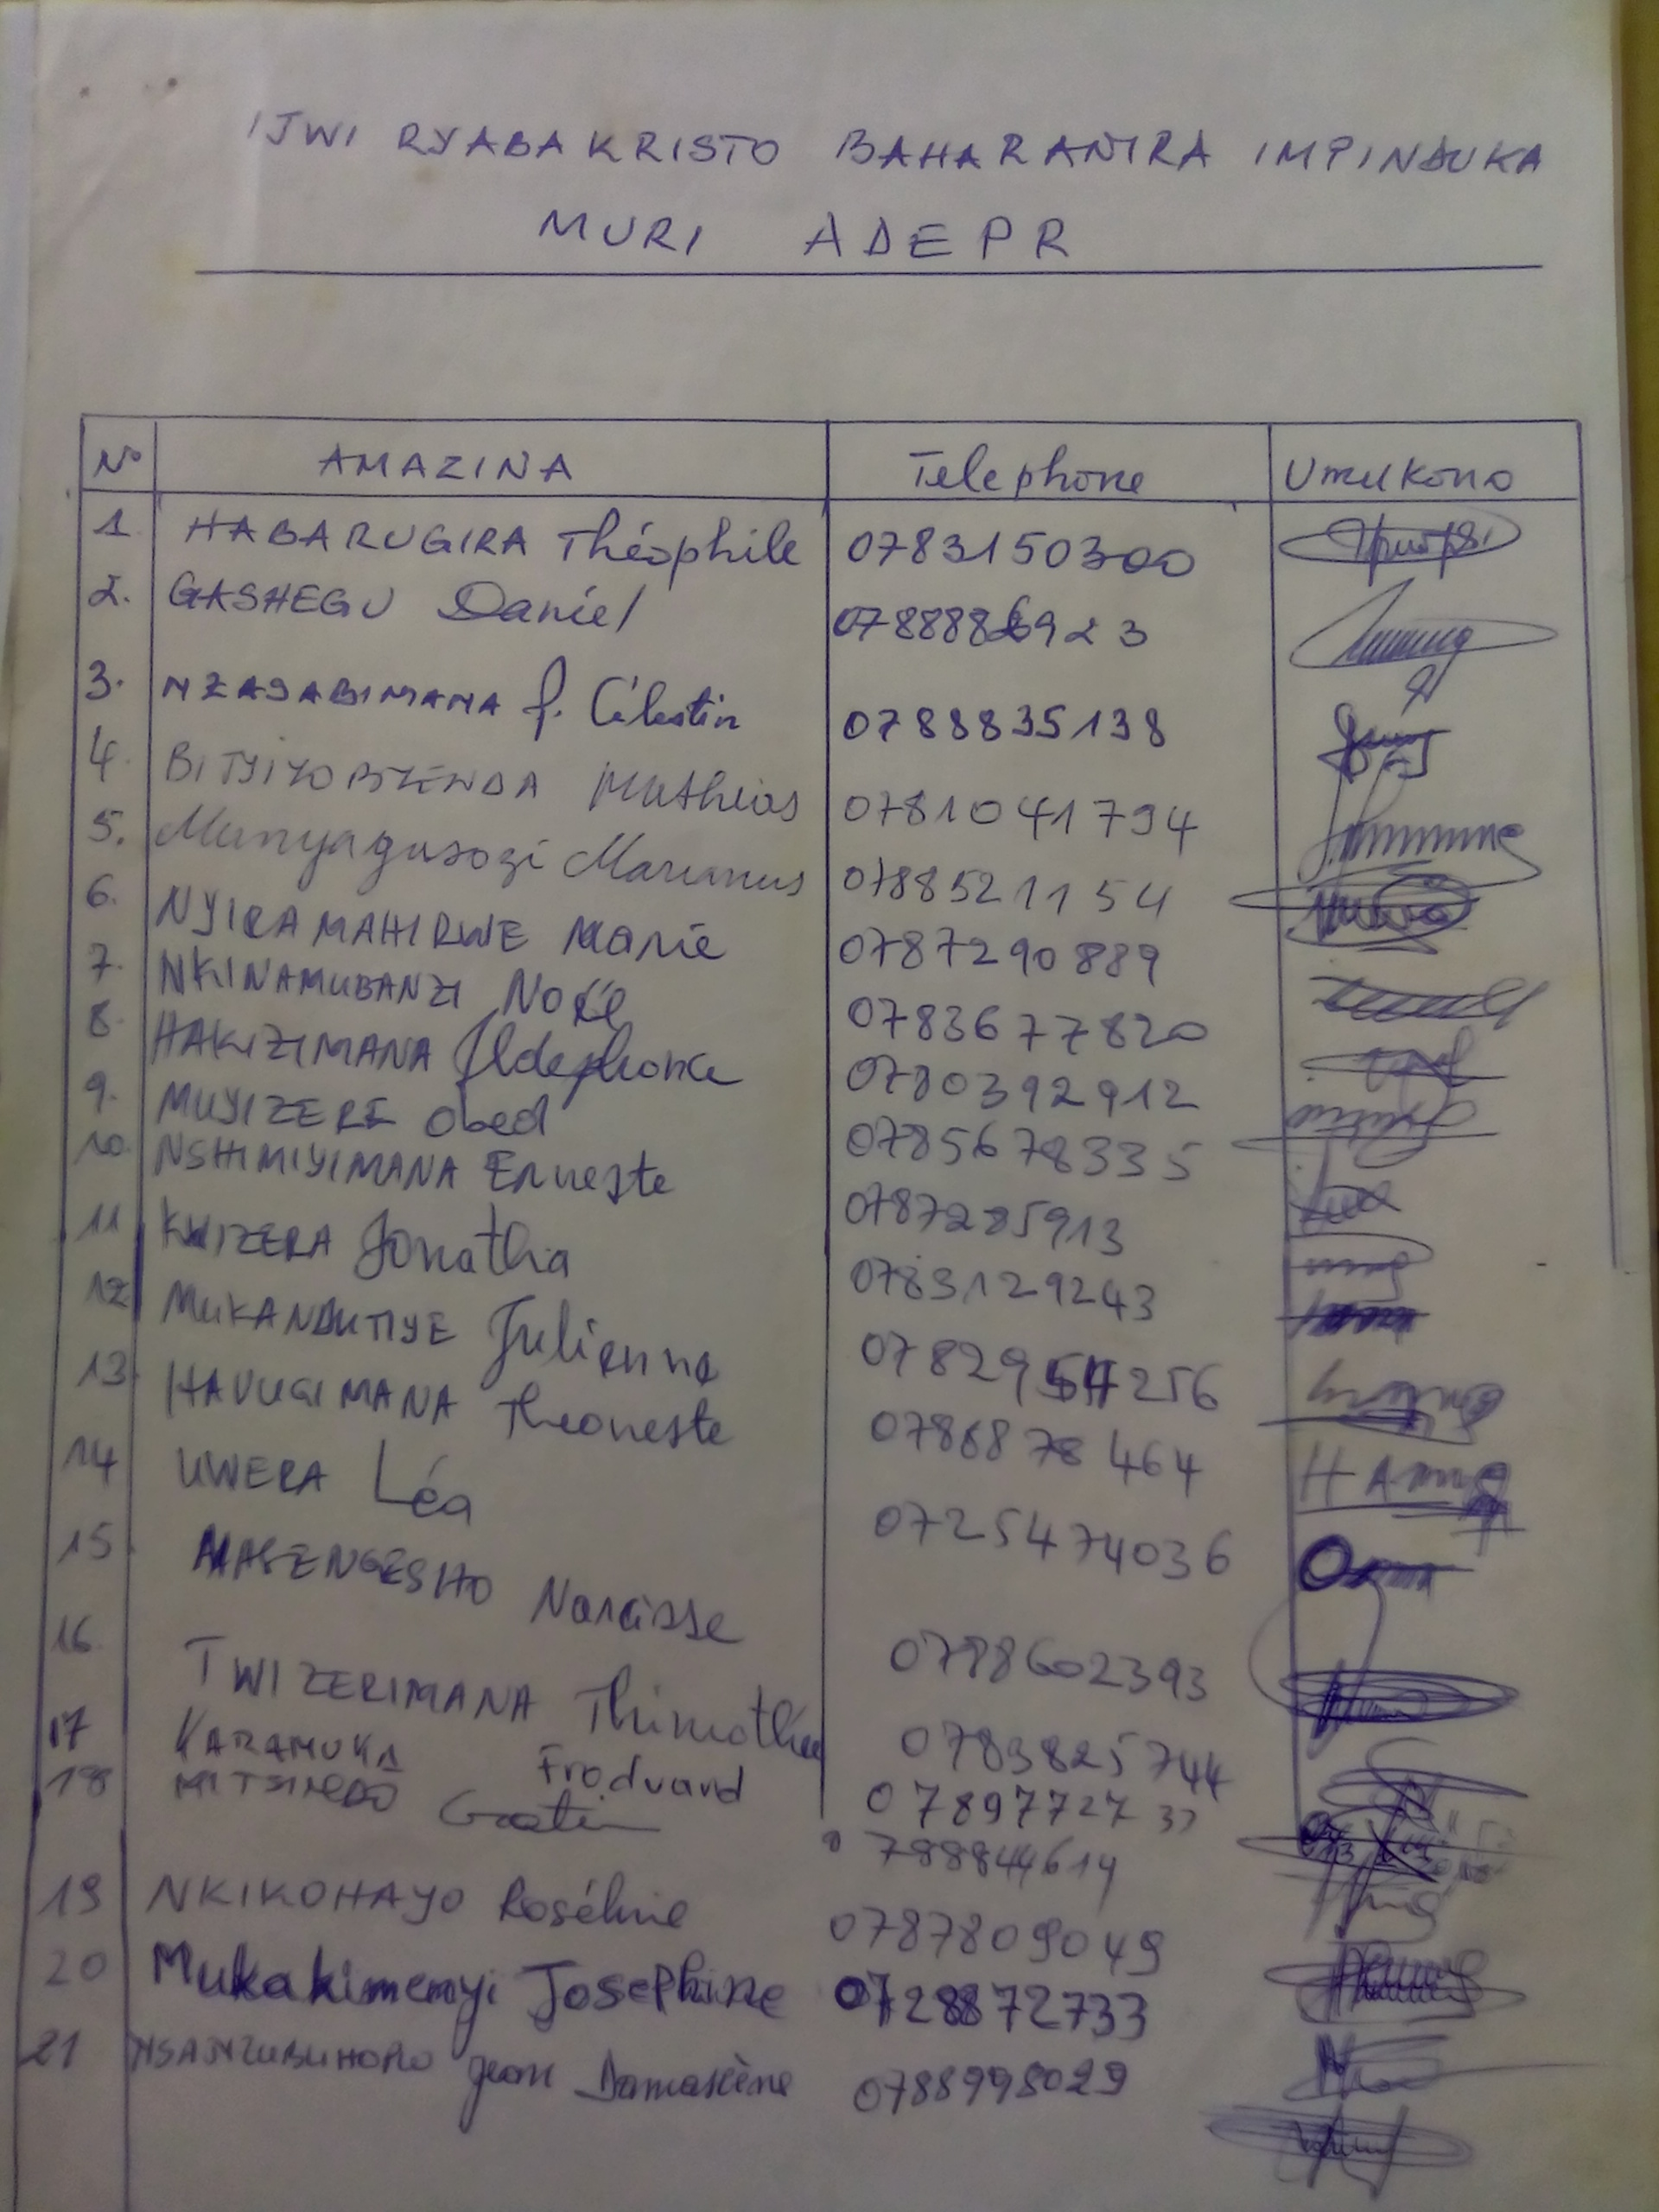 IJWI RYABAKRISTO BAHARANIRA IMPINDUKA
MURI ADEPR
N° AMAZINA Telephone Umukono
1. HABARUGIRA Théophile 0783150300
2. GASHEGU Daniel 0788886923
3. NZASABIMANA J. Célestin 0788835138
4. Mathias 0781041794
5. Munyagusozi Marianus 0788521154
6. NYIRAMAHIRWE Marie 0787290889
7. NKINAMUBANZI Noël 0783677820
8. HAKIZIMANA Ildephonse 0780392912
9. MUYIZERE Obed 0785678335
10. NSHIMIYIMANA Erneste 0787285913
11 KWIZERA Jonatha 0783129243
12 MUKANDUTIYE Julienne
13 HAVUGIMANA Theoneste 0786878464
14 UWERA Léa 0725474036
15 MASENGESHO Narcisse 0788602393
16 TWIZERIMANA Thimothée 0783825744
17 KARAMUKA Froduard 0789772733
18 Gratien 0788844614
19 NKIKOHAYO Roséline 0787809049
20 Mukakimenyi Josephine 0728872733
21 Jean Damascène 0788998029